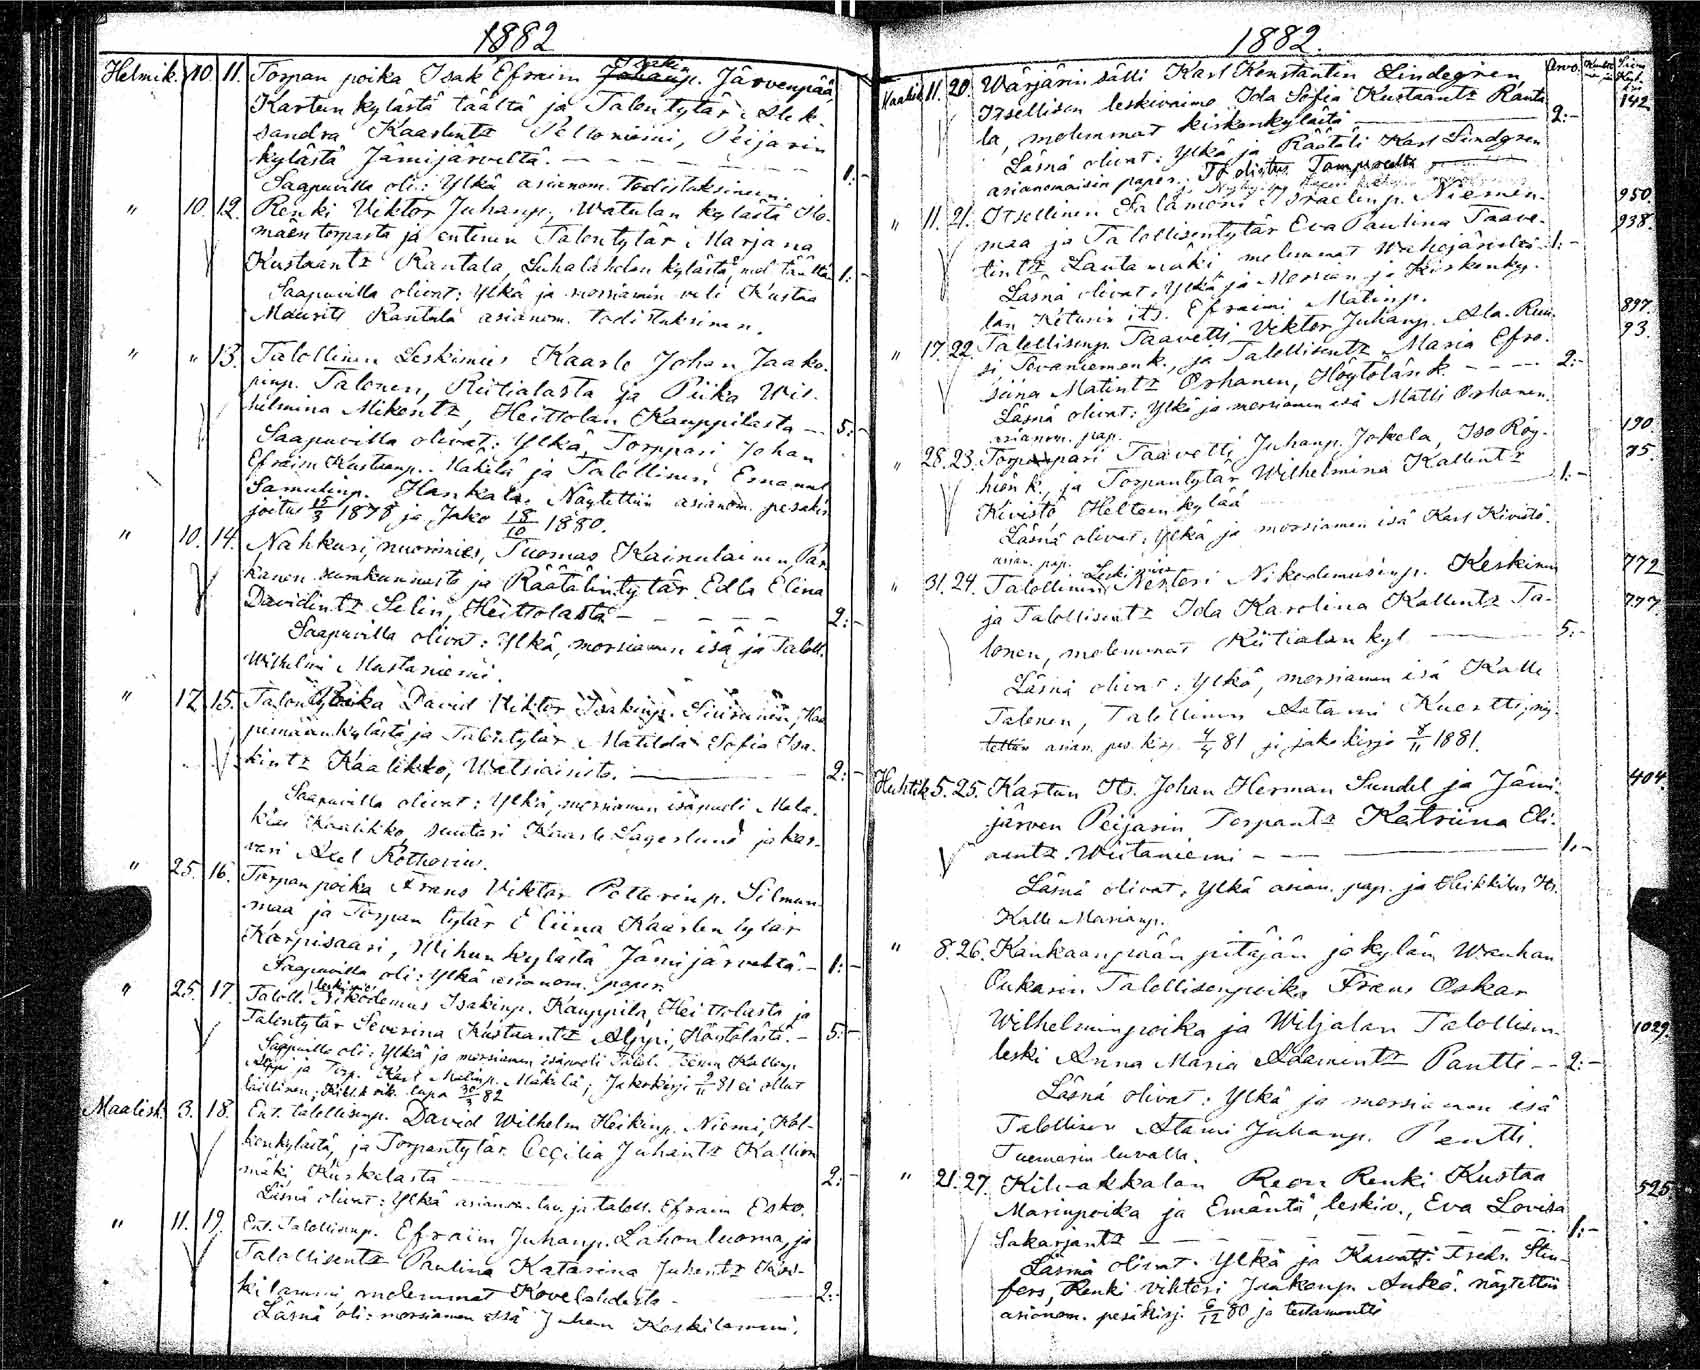 1882
Helmik. 10. 11. Torpan poika Isak Efraim Isakinp. Järvenpää,
Kartun kylästä täältä ja Talontytär Alek-
sandra Kaarlentr Peltoniemi, Peijarin
kylästä Jämijärveltä. 1:-
Saapuvilla oli: Ylkä asianom. todistuksineen.
" 10. 12. Renki Viktor Juhanp., Watulan kylästä
torpasta ja entinen Talontytär Marjana
Kustaantr Rantala, Luhalahden kylästä, mol. täältä 1:-
Saapuvilla olivat: Ylkä ja morsiamen veli Kustaa
Maurits Rantala asianom. todistuksineen.
" " 13. Talollinen Leskimies Kaarle Johan Jaako-
pinp. Talonen, Riitialasta ja Piika Wil-
helmina Mikontr, Heittolan Kauppilasta 5:-
Saapuvilla olivat: Ylkä, Torppari Johan
Efraim Kustaanp. Mäkelä ja Talollinen Emanuel
Samulinp. Hankala. Näytettiin asianom. pesäkir-
joitus 15/3 1878 ja Jako 18/10 1880.
" 10. 14. Nahkuri, nuorimies, Tuomas Kainulainen, Par-
kanon ja Räätälintytär Edla Elina
Davidintr Selin, Heittolasta 2:-
Saapuvilla olivat: Ylkä, morsiamen isä ja Taloll.
Wilhelmi Mustaniemi.
" 12. 15. Talonpoika David Viktor Isakinp. Siuruinen, Haa-
pimaankylästä ja Talontytär Matilda Sofia Isa-
kintr Kaalikko, Watsiaisista. 2:-
Saapuvilla olivat: Ylkä, morsiamen isäpuoli Mala-
kias Kaalikko, suutari Kaarle Lagerlund ja kar-
vari Axel
" 25. 16. Torpan poika Frans Viktor Petterinp. Silmun-
maa ja Torpan tytär Eliina Kaarlen tytär
Karpisaari, Mihun kylästä Jämijärveltä. 1:-
Saapuvilla oli: Ylkä asianom. paper.
" 25. 17. Taloll. leskimies Nikodemus Isakinp. Kauppila, Heittolasta ja
Talontytär Severina Kustaantr Alppi, 5:-
Saapuvilla oli: Ylkä ja morsiamen isäpuoli Taloll. Kallenp.
Alppi ja Torp. Karl Matinp. Mäkelä; Jakokirja 9/11 81 ei ollut
laillinen; lupa 30/3 82
Maalisk. 3. 18. Ent. talollisenp. David Wilhelm Heikinp. Niemi, Kol-
kenkylästä, ja Torpantytär Cecilia Juhantr Kallion-
mäki Kuskelasta 2:-
Läsnä olivat: Ylkä asianom. luv. ja taloll. Efraim Esko.
" 11. 19. Ent. Talollisenp. Efraim Juhanp. Lahonluoma, ja
Talollisentr Paulina Katarina Juhantr Kos-
kilammi molemmat Kovelahdesta 2:-
Läsnä oli: morsiamen isä Juhan Koskilammi.
1882.
Arvo. Sivu
Maalisk. 11. 20. Wärjärin sälli Karl Konstantin Lindegren, 142
Itsellisen leskivaimo Ida Sofia Kustaantr Ranta-
la, molemmat kirkonkylästä 2:-
Läsnä olivat: Ylkä ja Räätäli Karl Lindgren
asianomaisin paper. Todistus Tampereelta
" 11. 21. Itsellinen Salamoni Israelinp. Niemen- 950.
maa ja Talollisentytär Eva Paulina Taave- 938.
tintr Lautamäki molemmat 1:-
Läsnä olivat: Ylkä ja Morsian ja Kirkonky-
län its. Efraimi Matinp.
" 17. 22. Talollisenp. Taavetti Vektor Juhanp. Ala-Ruu- 897.
si Tevaniemenk., ja Talollisentr Maria Efro- 93.
siina Matintr Orhanen, Höytölänk. 2:-
Läsnä olivat: Ylkä ja morsiamen isä Matti Orhanen
asianom. pap.
" 28. 23. Torppari Taavetti Juhanp. Jokela, Iso Röy- 190.
hiön k., ja Torpantytär Wilhelmina Kallentr 75.
Kivistö Helteenkylää 1:-
Läsnä olivat: Ylkä ja morsiamen isä Karl Kivistö.
asian. pap.
" 31. 24. Talollinen Leskimies Nestori Nikodemusinp. Keskinen 772
ja Talollisentr Ida Karolina Kallentr Ta- 777.
lonen, molemmat Riitialan kyl. 5:-
Läsnä olivat: Ylkä, morsiamen isä Kalle
Talonen, Talollinen Aatami Kuertti, näy-
tettiin asian. pes. kirj. 4/4 81 ja jakokirja 8/11 1881.
Huhtik. 5. 25. Kartun Its. Johan Herman Sundel ja Jämi- 404.
järven Peijarin Torpantr Katriina Eli-
aantr. Wiitaniemi 1:-
Läsnä olivat, Ylkä asian. pap. ja Heikkilän Its.
Kalle Marianp.
" 8. 26. Kankaanpään pitäjän ja kylän Wanhan
Oukarin Talollisenpoika Frans Oskar
Wilhelminpoika ja Wiljalan Talollisen 1029.
leski Anna Maria Adamintr Pantti 2:-
Läsnä olivat: Ylkä ja morsiamen isä
Talollisen Atami Juhanp. Pentti.
Tuomarin luvalla.
" 21. 27. Kilvakkalan Reon Renki Kustaa 525
Marinpoika ja Emäntä, leskiv., Eva Lovisa
Sakarjantr 1:-
Läsnä olivat: Ylkä ja Karvari Fredr. Stin-
fors, Renki Viktori Jaakonp. Ankä. näytettiin
asianom. pesäkirj. 6/12 80 ja testamentti